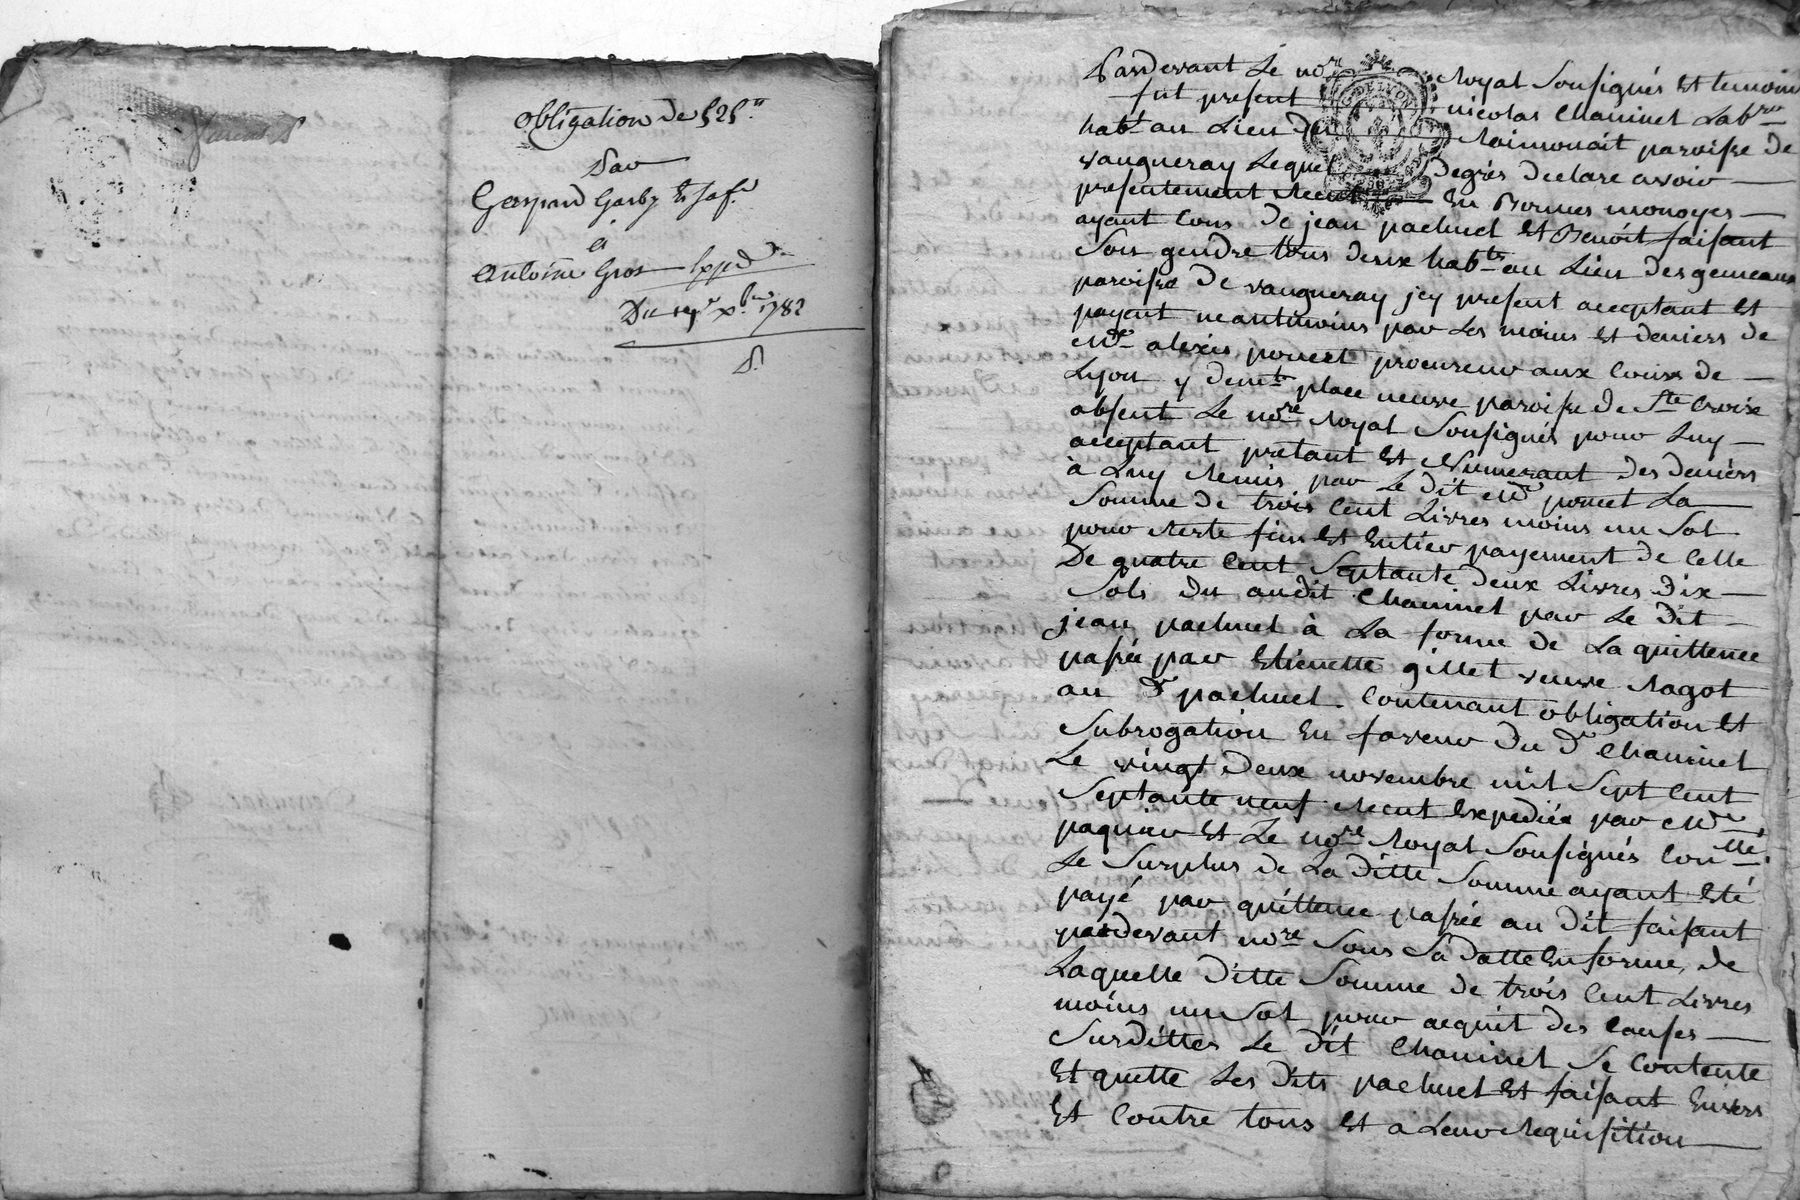 obligation de 525.ᵗᵗ
Par
Gaspard Garby & Sa f.e
à
Antoine Gros Expd.
Du xbre 1782
Pardevant Le nore Royal Sousignés Et temoins
fut present nicolas Chaninel Labr
habt au Lieu de Raimonait paroisse de
vaugneray Lequel Degrés declare avoir
presentement Receu En Bonnes monoyes
ayant Cours De jean pachuel Et Benoit faisant
Son gendre tous deux habts au Lieu des gemeaux
paroisse De vaugneray jcy present acceptant Et
payant neantmoins par Les mains Et deniers de
Me alexis poncet procureur aux Cours de
Lyon y demt place neuve paroisse de Ste Croix
absent Le nore Royal Sousignés pour Luy
acceptant prêtant Et Numerant des deniers
à Luy Remis par Le dit Me poncet La
Somme de trois Cent Livres moins un Sol
pour Reste fin Et Entier payement de Celle
De quatre Cent Septante deux Livres Dix
Sols Du audit Chaninel par Le Dit
jean pachuel à La forme de La quittence
passée par Etienette gillet veuve Ragot
au dt pachuel. Contenant obligation Et
Subrogation En faveur Du dt Chaninel
Le vingt deux novembre mil Sept Cent
Septante neuf Receut Expediée par Me
paquier Et Le nore Royal Sousignés Conlle.
Le Surplus de La ditte Somme ayant Eté
payé par quittence passée au dit faisant
pardevant nore Sous Sa datte En forme, de
Laquelle ditte Somme de trois Cent Livres
moins un Sol pour acquit des Causes
Surdittes Le dit Chaninel Se Contente
Et quitte Les dits pachuel Et faisant Envers
Et Contre tous Et a Leur Requisition